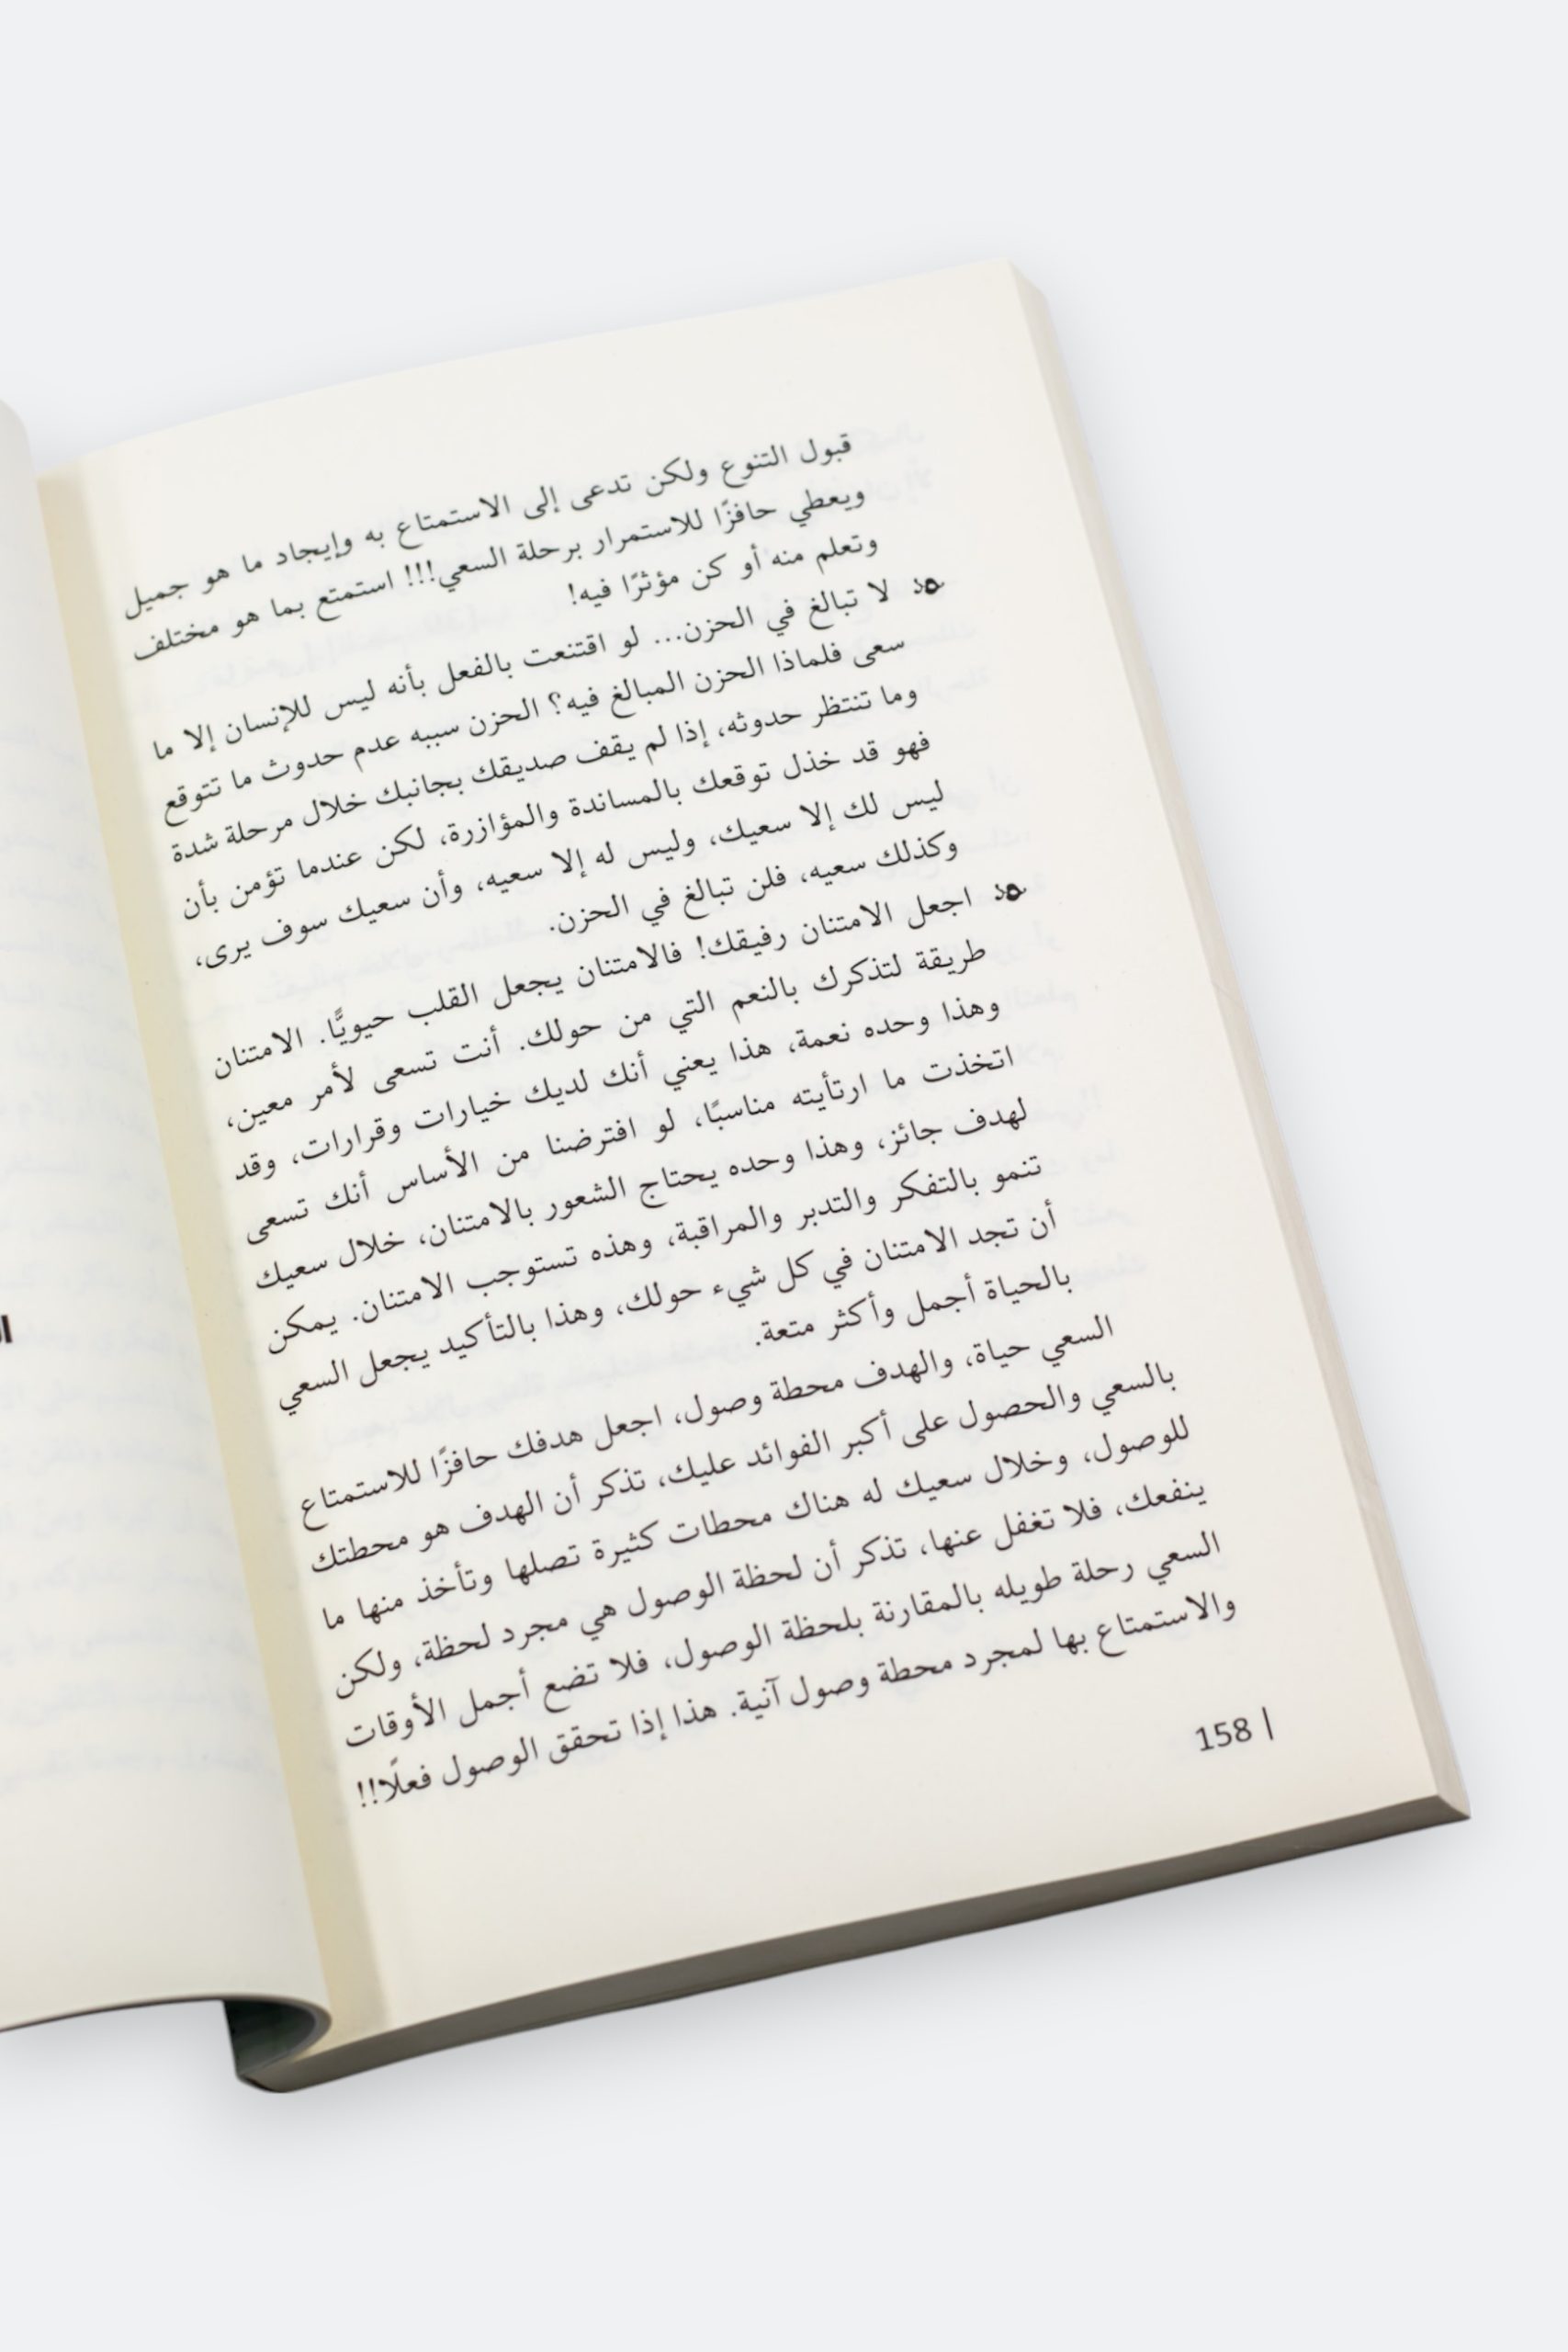 قبول التنوع ولكن تدعى إلى الاستمتاع به وإيجاد ما هو جميل
ويعطي حافزًا للاستمرار برحلة السعي!!! استمتع بما هو مختلف
وتعلم منه أو كن مؤثرًا فيه!
لا تبالغ في الحزن... لو اقتنعت بالفعل بأنه ليس للإنسان إلا ما
سعى فلماذا الحزن المبالغ فيه؟ الحزن سببه عدم حدوث ما تتوقع
وما تنتظر حدوثه، إذا لم يقف صديقك بجانبك خلال مرحلة شدة
فهو قد خذل توقعك بالمساندة والمؤازرة، لكن عندما تؤمن بأن
ليس لك إلا سعيك، وليس له إلا سعيه، وأن سعيك سوف يرى،
وكذلك سعيه، فلن تبالغ في الحزن.
اجعل الامتنان رفيقك! فالامتنان يجعل القلب حيويًّا. الامتنان
طريقة لتذكرك بالنعم التي من حولك. أنت تسعى لأمر معين،
وهذا وحده نعمة، هذا يعني أنك لديك خيارات وقرارات، وقد
اتخذت ما ارتأيته مناسبًا، لو افترضنا من الأساس أنك تسعى
لهدف جائز، وهذا وحده يحتاج الشعور بالامتنان، خلال سعيك
تنمو بالتفكر والتدبر والمراقبة، وهذه تستوجب الامتنان. يمكن
أن تجد الامتنان في كل شيء حولك، وهذا بالتأكيد يجعل السعي
بالحياة أجمل وأكثر متعة.
السعي حياة، والهدف محطة وصول، اجعل هدفك حافزًا للاستمتاع
بالسعي والحصول على أكبر الفوائد عليك، تذكر أن الهدف هو محطتك
للوصول، وخلال سعيك له هناك محطات كثيرة تصلها وتأخذ منها ما
ينفعك، فلا تغفل عنها، تذكر أن لحظة الوصول هي مجرد لحظة، ولكن
السعي رحلة طويله بالمقارنة بلحظة الوصول، فلا تضع أجمل الأوقات
والاستمتاع بها لمجرد محطة وصول آنية. هذا إذا تحقق الوصول فعلًا!!
158 |